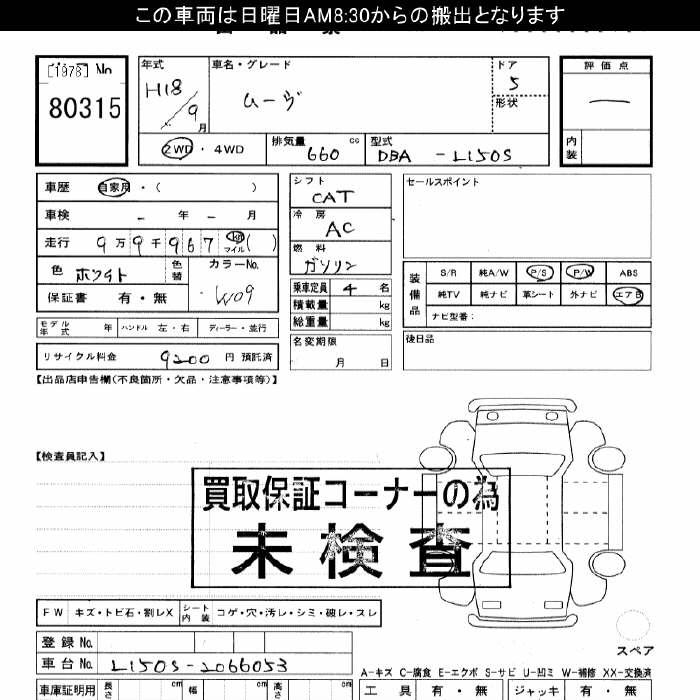 この車両は日曜日AM8:30からの搬出となります
[1978] No
80315
年式
H18/9月
車名・グレード
ムーヴ
ドア
5
形状
評価点
―
内装
2WD・4WD
排気量
660 cc
型式
DBA - L150S
車歴 自家用・( )
車検 - 年 - 月
走行 9万9千967 km マイル ( )
色 ホワイト
色替
カラーNo.
W09
保証書 有・無
シフト
CAT
冷房
AC
燃料
ガソリン
乗車定員 4名
積載量 kg
総重量 kg
セールスポイント
装備品
S/R 純A/W P/S P/W ABS
純TV 純ナビ 革シート 外ナビ エアB
ナビ型番:
モデル年式 年 ハンドル 左・右 ディーラー・並行
リサイクル料金 9200 円 預託済
名変期限
月 日
後日品
【出品店申告欄(不良箇所・欠品・注意事項等)】
【検査員記入】
買取保証コーナーの為
未検査
FW キズ・トビ石・割レX シート内装 コゲ・穴・汚レ・シミ・破レ・スレ
登録 No.
車台 No. L150S-2066053
スペア
A-キズ C-腐食 E-エクボ S-サビ U-凹ミ W-補修 XX-交換済
車庫証明用 長さ cm 幅 cm 高さ cm
工具 有・無 ジャッキ 有・無